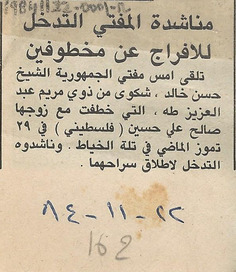 مناشدة المفتي التدخل
للافراج عن مخطوفين
تلقى امس مفتي الجمهورية الشيخ
حسن خالد ، شكوى من ذوي مريم عبد
العزيز طه ، التي خطفت مع زوجها
صالح علي حسين ( فلسطيني ) في ٢٩
تموز الماضي في تلة الخياط . وناشدوه
التدخل لاطلاق سراحهما .
٢٢-١١-٨٤
162